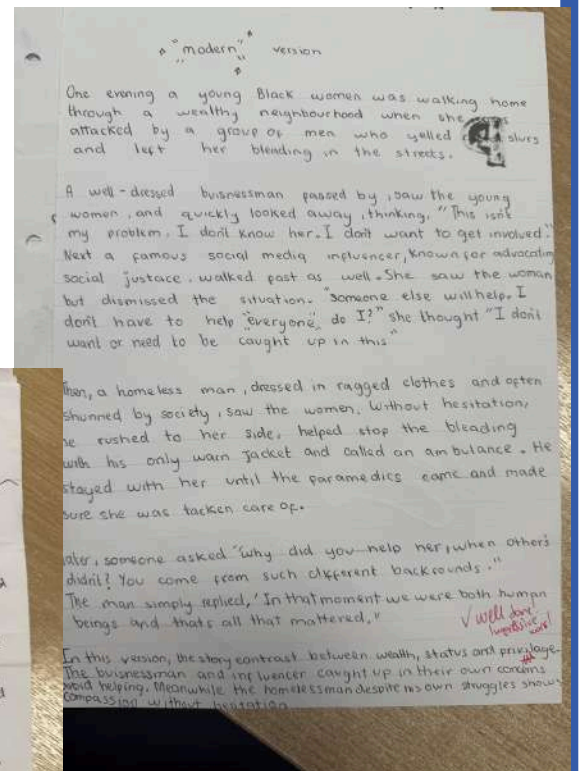 "modern" version
One evening a young Black women was walking home
through a wealthy neighbourhood when she
attacked by a group of men who yelled slurs
and left her bleeding in the streets.
A well-dressed buisnessman passed by, saw the young
women, and quickly looked away, thinking, "This isn't
my problem. I don't know her. I don't want to get involved."
Next a famous social media influencer, known for advocating
social justace, walked past as well. She saw the woman
but dismissed the situation. "Someone else will help. I
don't have to help "everyone" do I?" she thought "I don't
want or need to be caught up in this"
Then, a homeless man, dressed in ragged clothes and often
shunned by society, saw the women. Without hesitation,
he rushed to her side, helped stop the bleeding
with his only warn jacket and called an ambulance. He
stayed with her until the paramedics came and made
sure she was tacken care of.
later, someone asked "why did you help her, when other's
didn't? You come from such different backrounds."
The man simply replied, "In that moment we were both human
beings and thats all that mattered."
✓ well done!
In this version, the story contrast between wealth, status and privilage.
The buisnessman and influencer caught up in their own concerns
avoid helping. Meanwhile the homeless man despite his own struggles show
compassion without